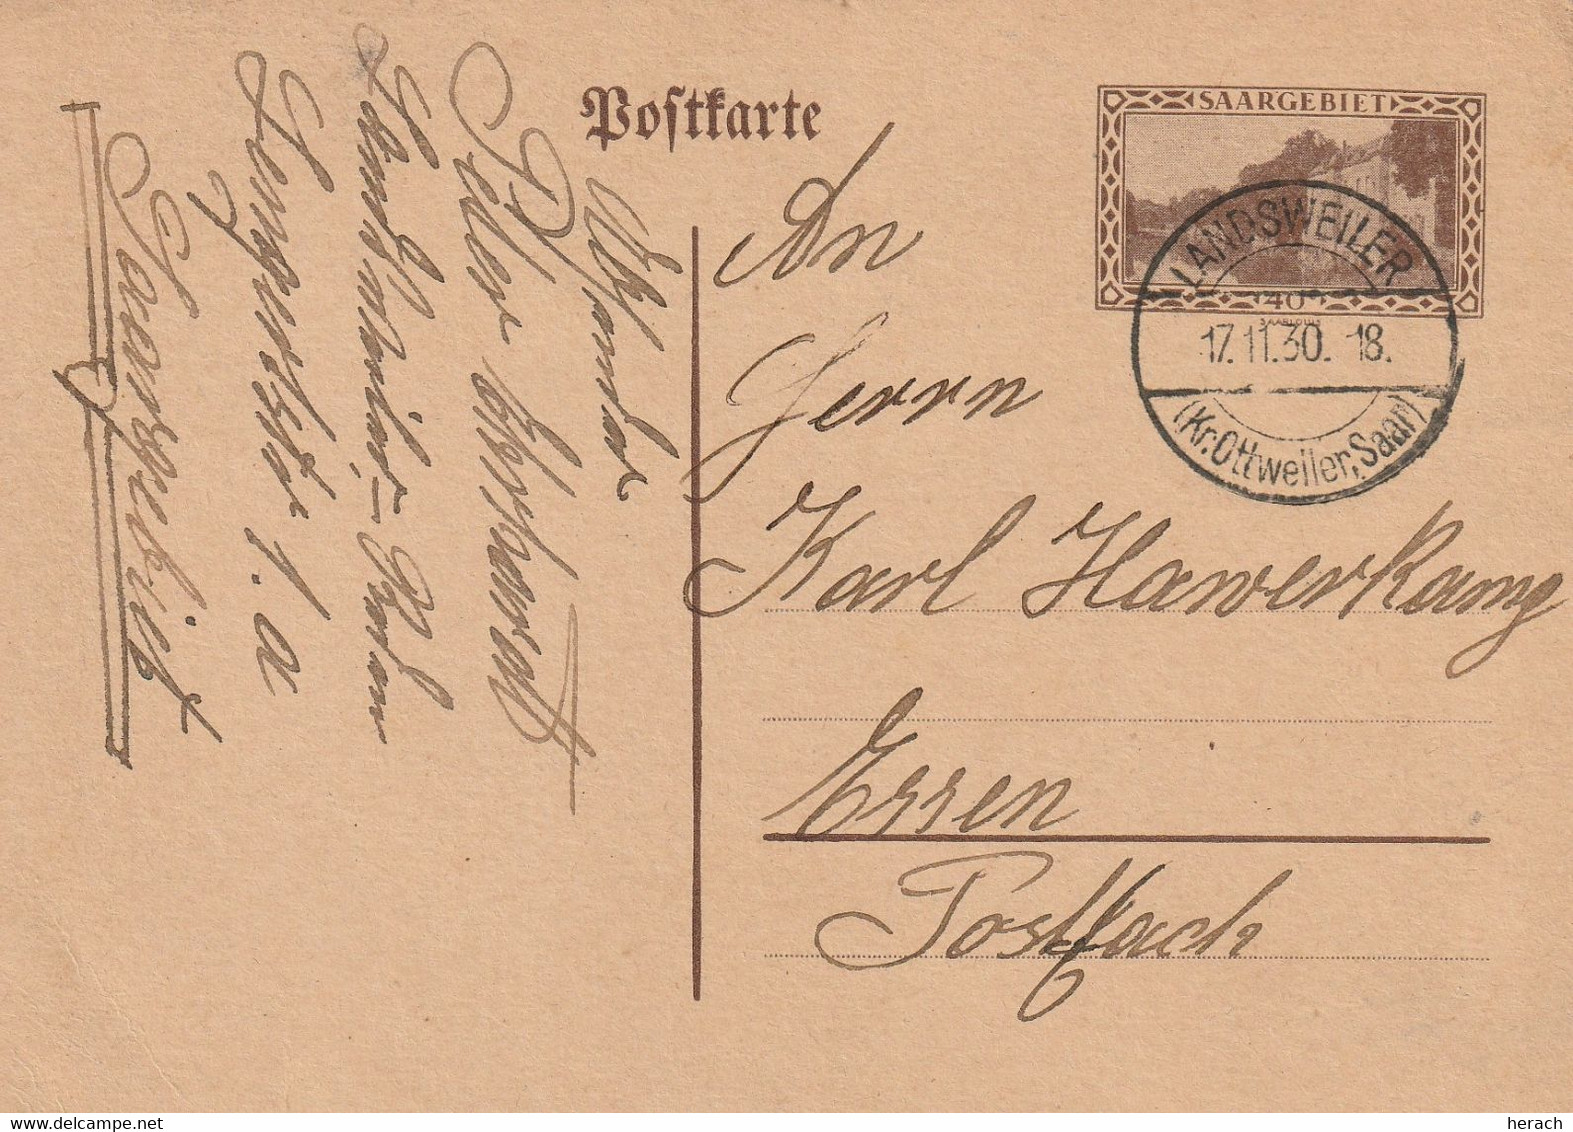 Postkarte
SAARGEBIET
40
SAARLOUIS
LANDSWEILER
17.11.30. 18.
(Kr. Ottweiler, Saar)
An
Herrn
Karl Hawerkamp
Essen
Postfach
Absender
Peter
Landsweiler-Reden
1. a
Saargebiet
herach